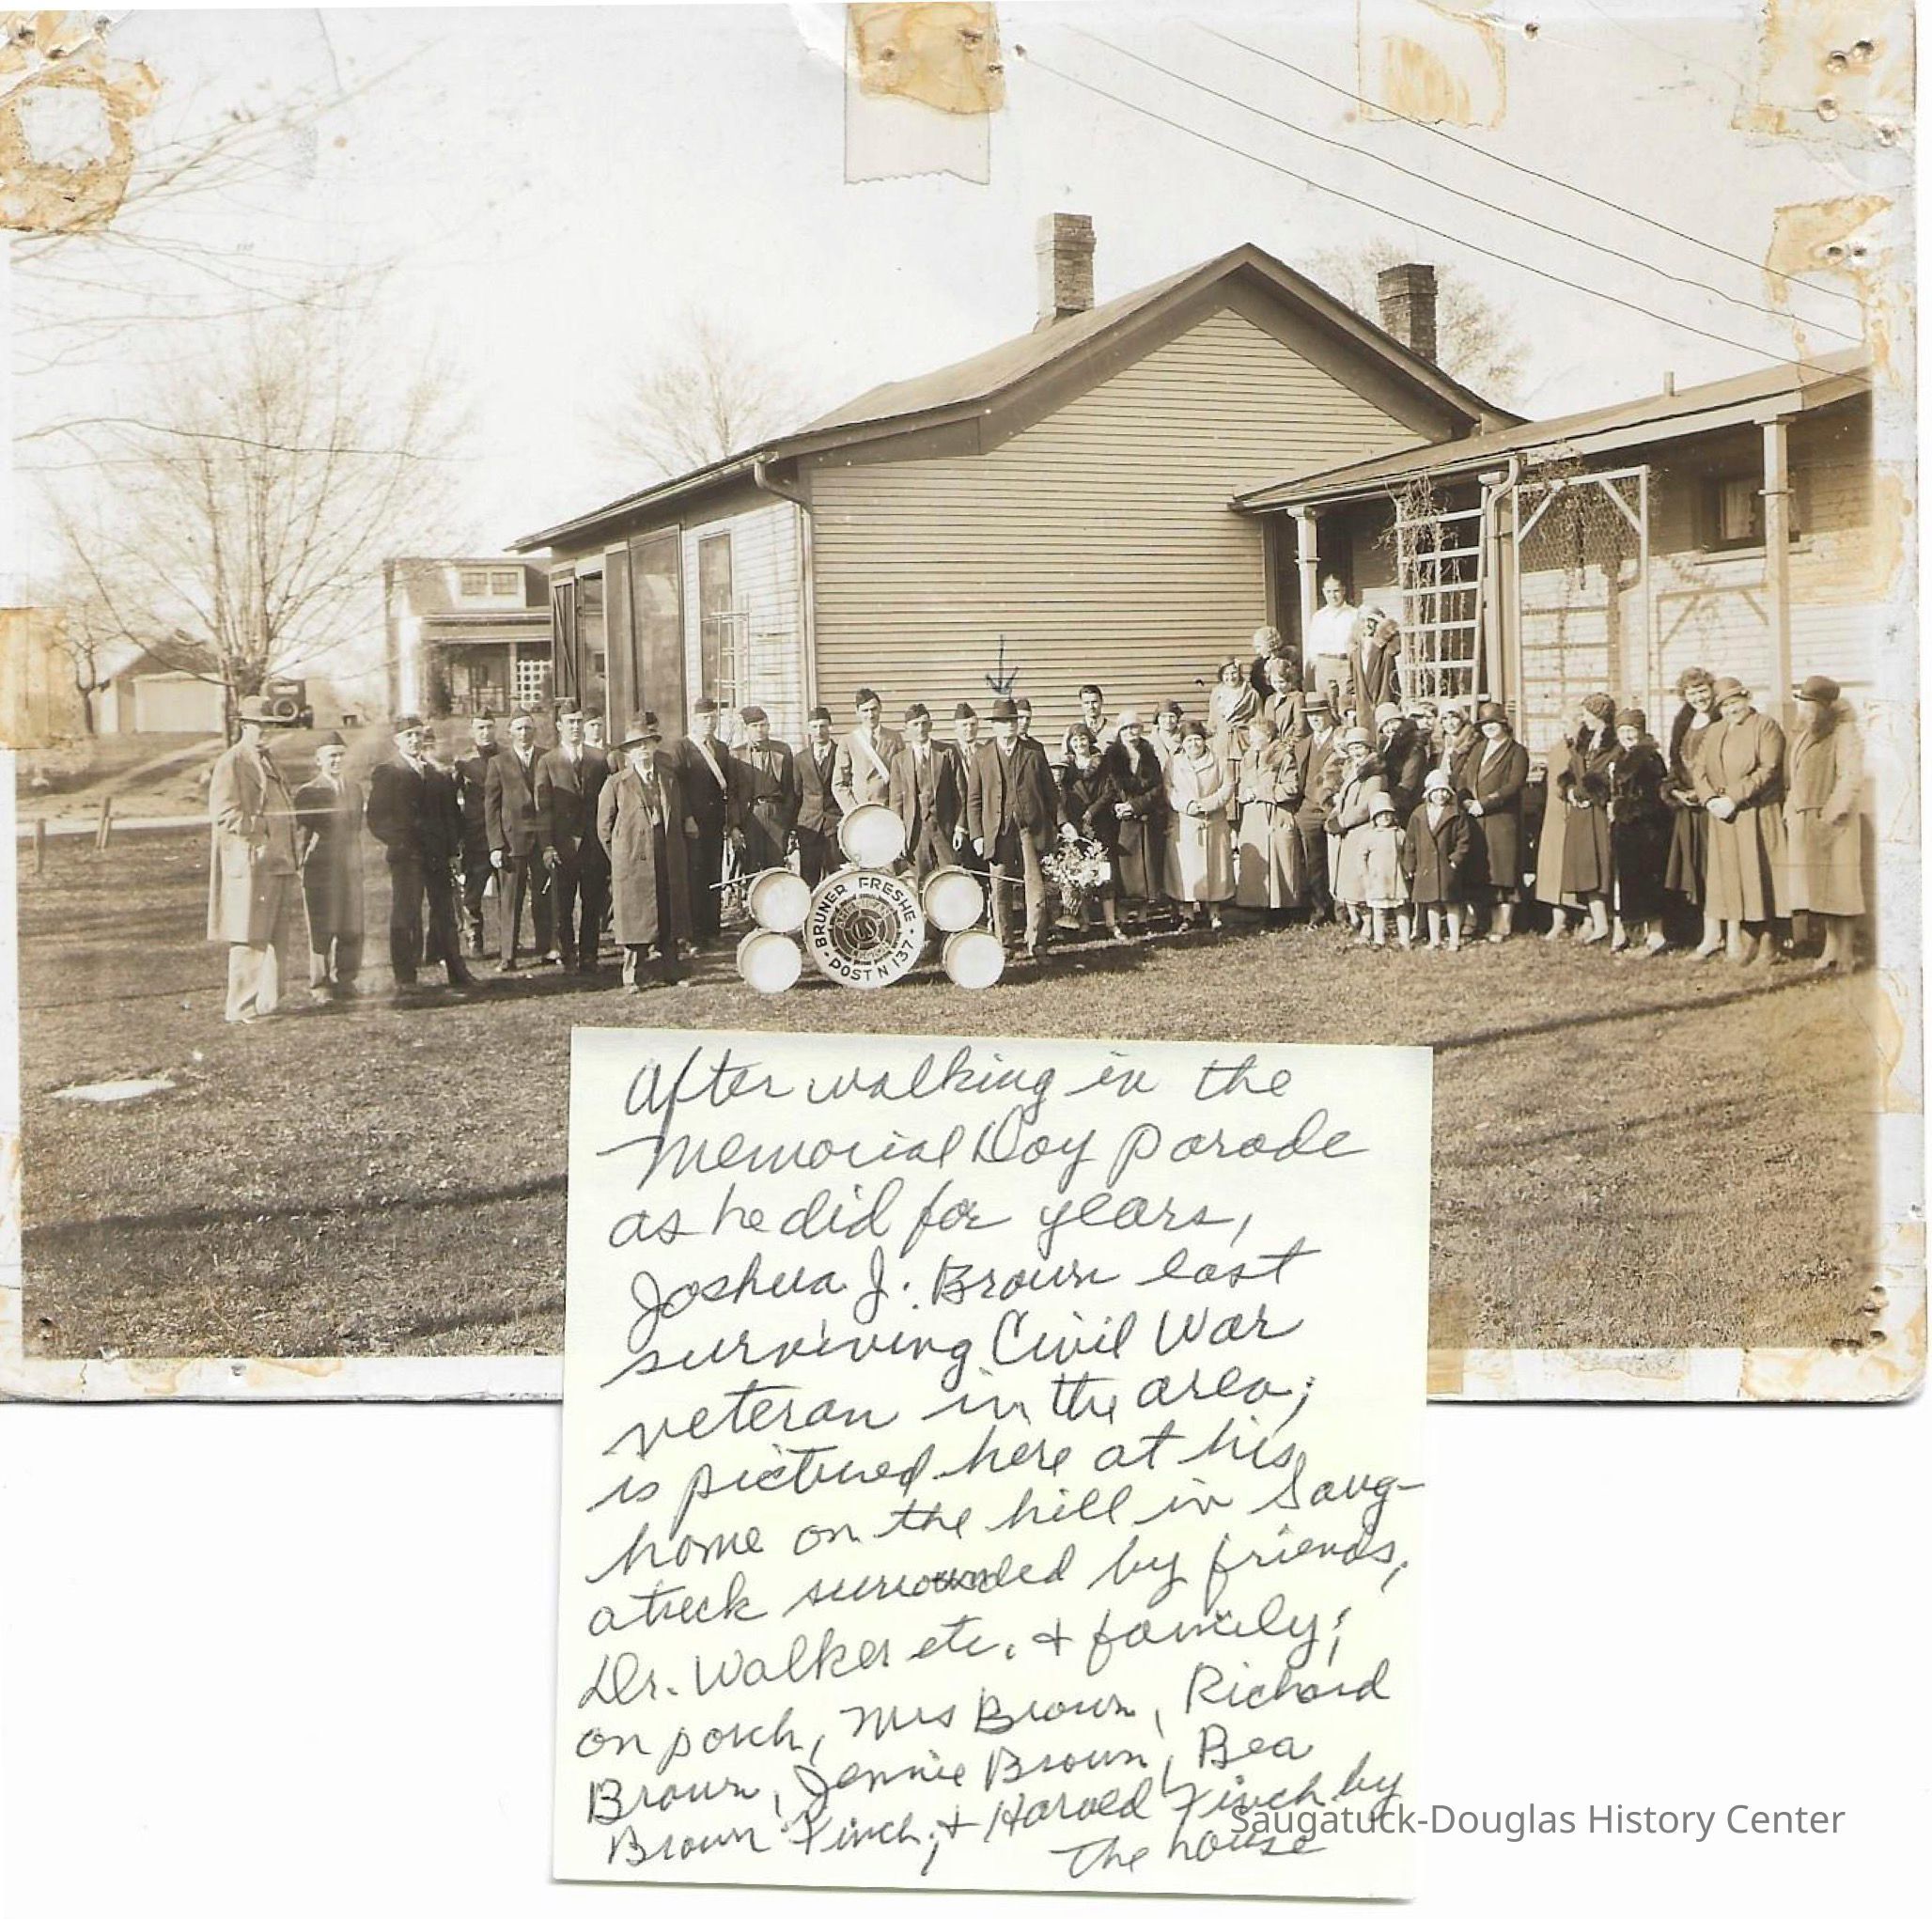 BRUNER FRESHE
POST N 137
U S
After walking in the
Memorial Day parade
as he did for years,
Joshua J. Brown last
surviving Civil War
veteran in the area;
is pictured here at his
home on the hill in Saug-
atuck surrounded by friends,
Dr. Walker etc. + family;
on porch, Mrs Brown, Richard
Brown, Jennie Brown, Bea
Brown Finch, + Harold Finch by
the house
Saugatuck-Douglas History Center